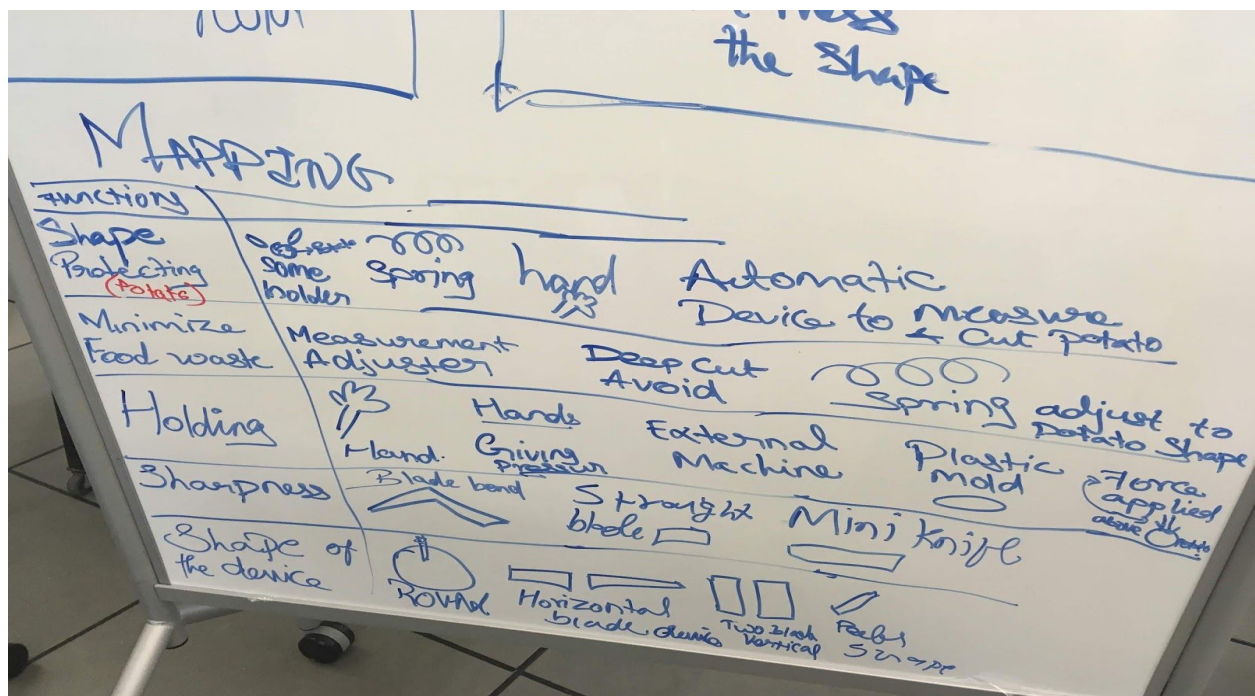 the Shape
MAPPING
Functions
Shape
Protecting
(Potato)
some
holder
Spring
hand
Automatic
Device to measure
& Cut potato
Minimize
Food waste
Measurement
Adjuster
Deep Cut
Avoid
Spring adjust to
Potato Shape
Holding
Hand.
Hands
Giving
Pressur
External
Machine
Plastic
mold
Force
applied
above the
Potato
Sharpness
Blade bend
Straight
blade
Mini Knife
Shape of
the device
ROUND
Horizontal
blade device
Two blade
Vertical
Shape